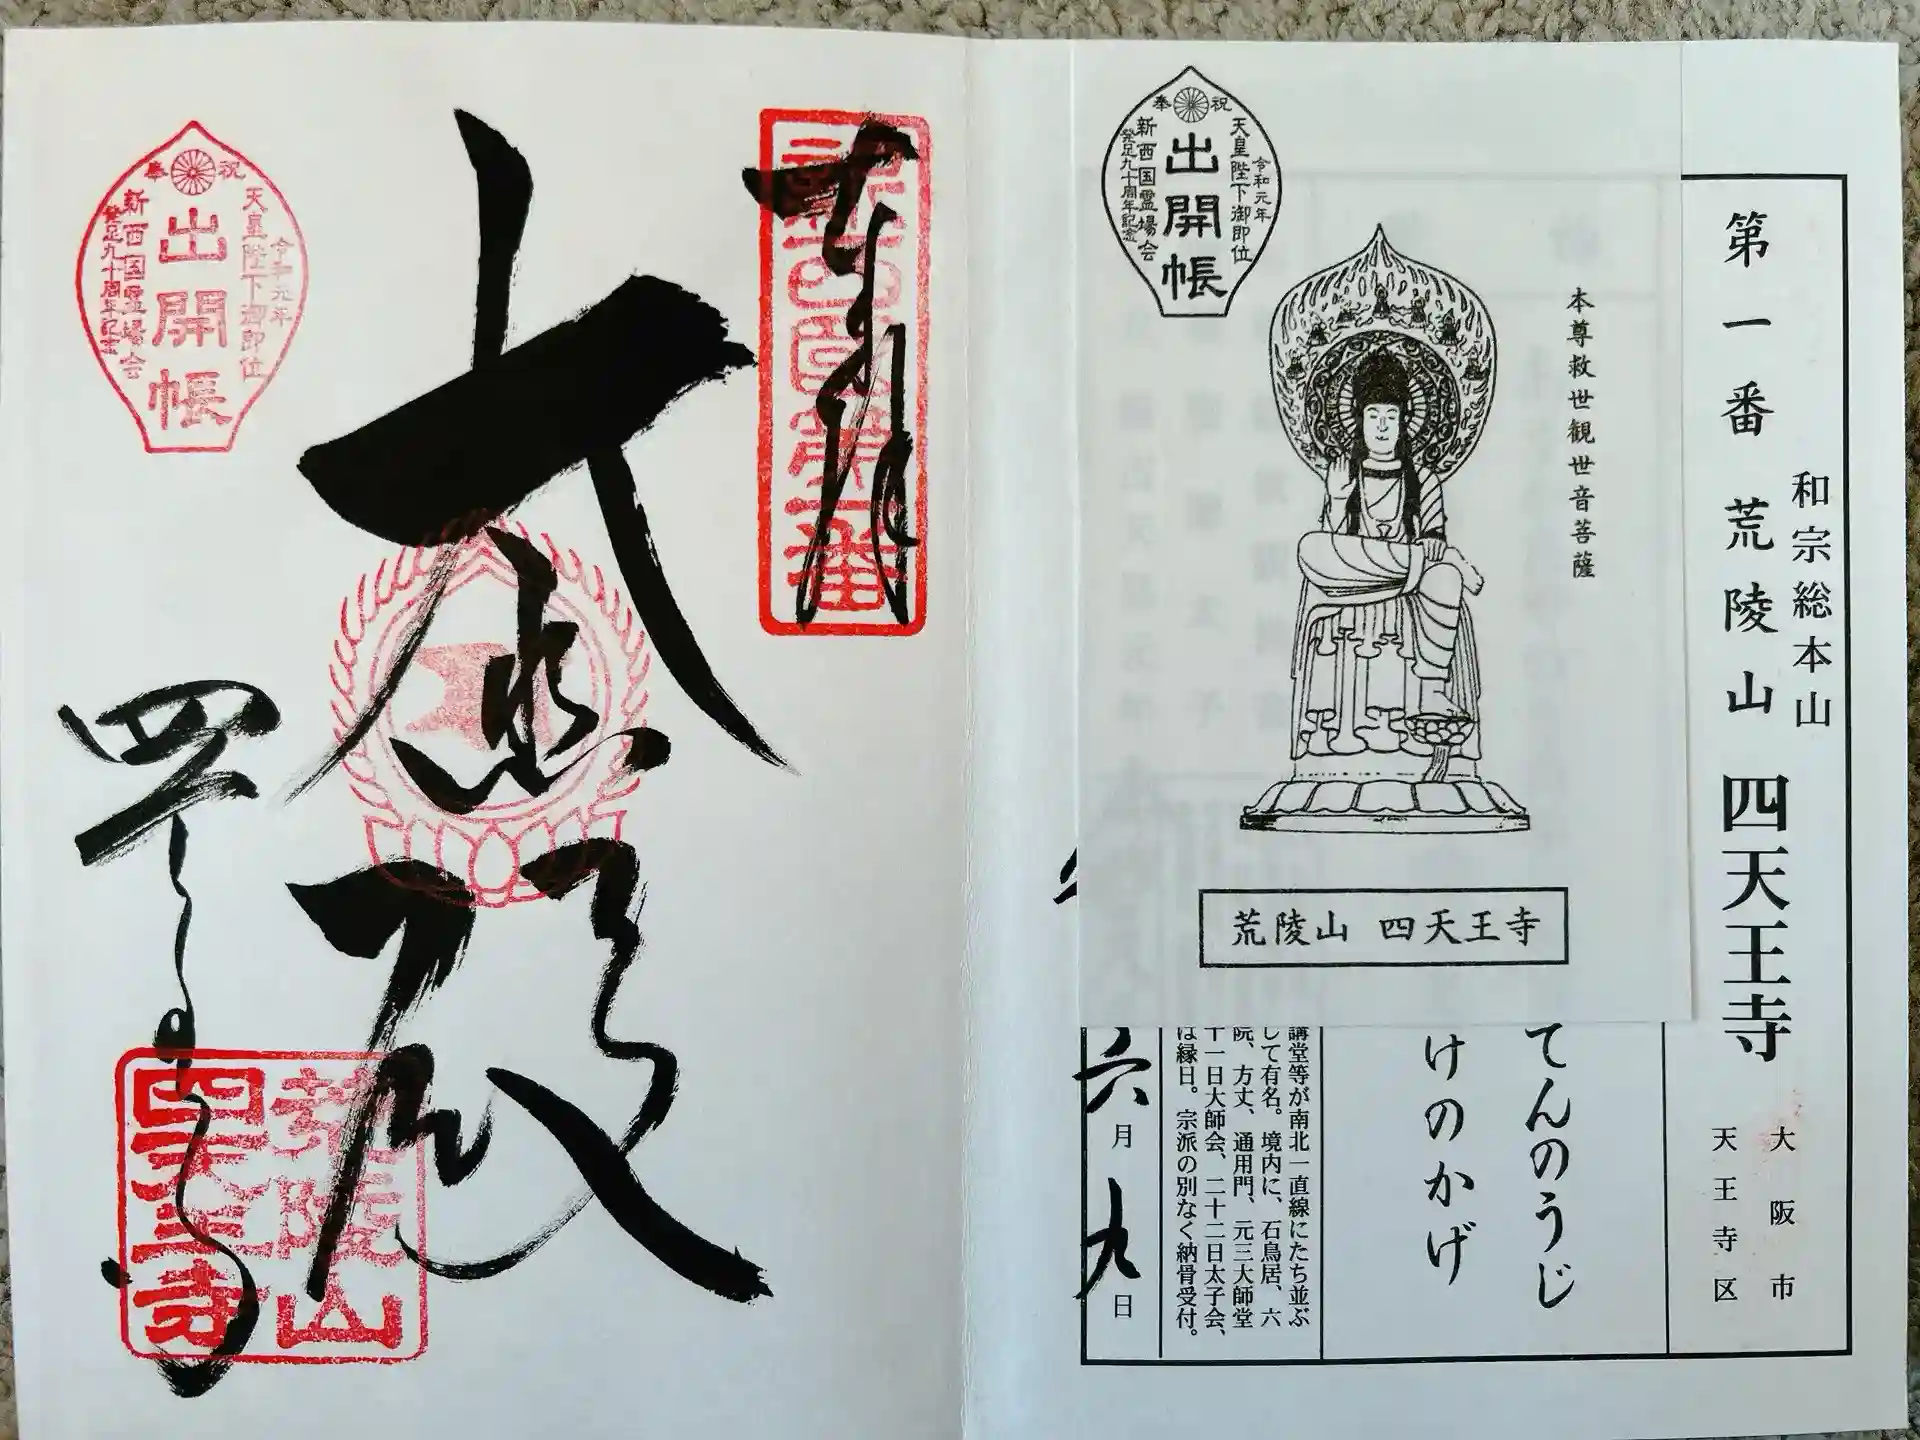 第一番 荒陵山 四天王寺
和宗総本山
大阪市
天王寺区
本尊救世観世音菩薩
奉祝
天皇陛下御即位
令和元年
出開帳
新西国霊場会
発足九十周年記念
荒陵山 四天王寺
てんのうじ
けのかげ
講堂等が南北一直線にたち並ぶ
して有名。境内に、石鳥居、六
院、方丈、通用門、元三大師堂
十一日大師会、二十二日太子会、
は縁日。宗派の別なく納骨受付。
六月九日
奉拝
新西国第一番
大悲殿
四天王寺
荒陵山
四天王寺
奉祝
天皇陛下御即位
令和元年
出開帳
新西国霊場会
発足九十周年記念